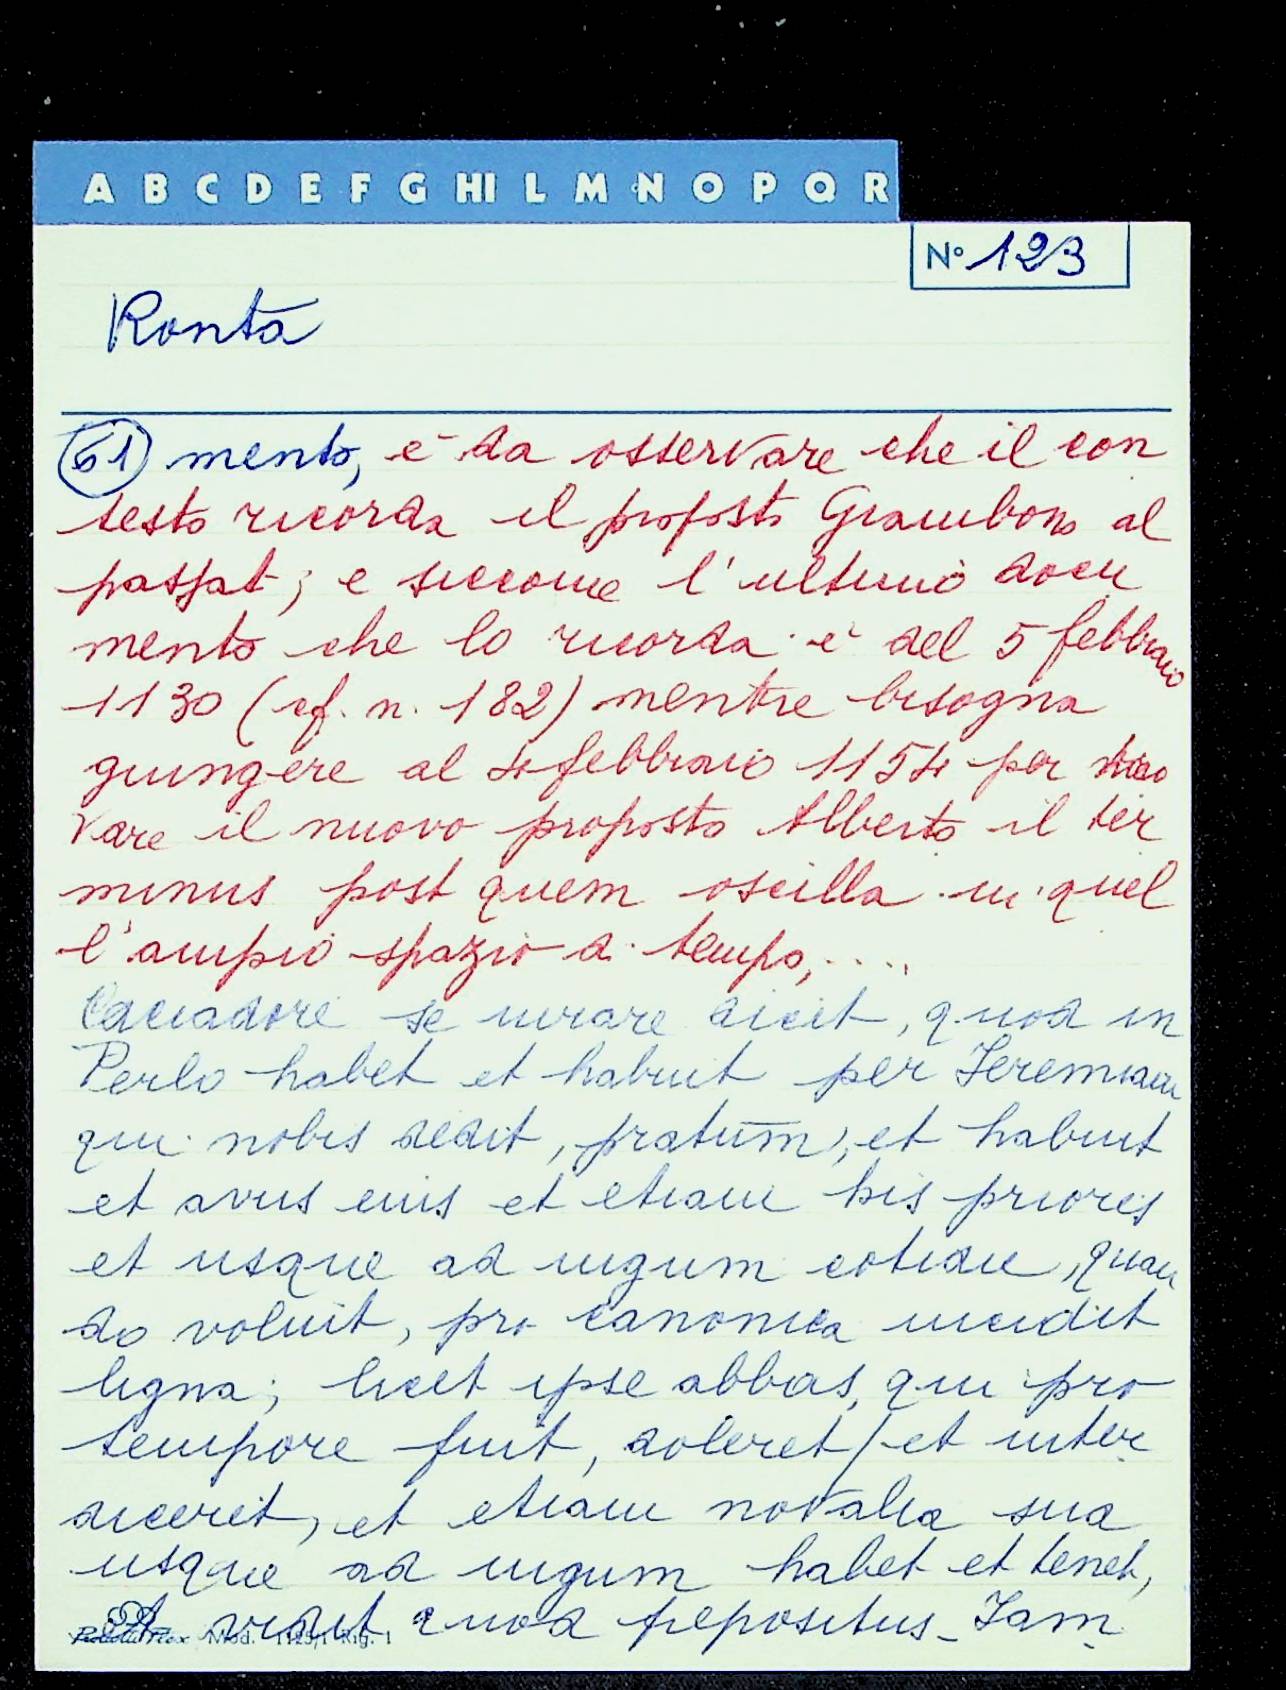 A B C D E F G HI L M N O P Q R
N° 123
Ronta
(61) mento, è da osservare che il con
testo ricorda il proposto Giambono al
passat; e siccome l'ultimo docu
mento che lo ricorda è del 5 febbraio
1130 (cf. n. 182) mentre bisogna
giungere al 4 febbraio 1154 per
vare il nuovo proposto Alberto il ter
minus post quem oscilla in quel
l'ampio spazio di tempo, ....
Caciadore se iurare dicit, quod in
Perlo habet et habuit per Ieremiam
qui nobis dedit, pratum, et habuit
et avus eius et etiam his priores
et usque ad iugum cotidie, quan
do voluit, pro canonica incidit
ligna; licet ipse abbas, qui pro
tempore fuit, doleret et inter
diceret, et etiam novalia sua
usque ad iugum habet et tenet,
vidit quod prepositus Iam
Mod. 1125/1 Rig. 1